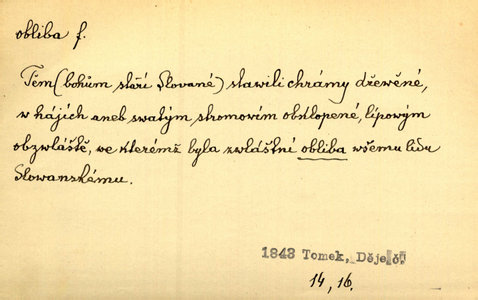 obliba f.
Těm (bohům staří Slované) stawili chrámy dřewěné,
w hájích aneb swatým stromovím obstlopené, lípowým
obzwláště, we kterémž byla zwláštní obliba wšemu lidu
Slowanskému.
1843 Tomek, Děje č.
14, 16.